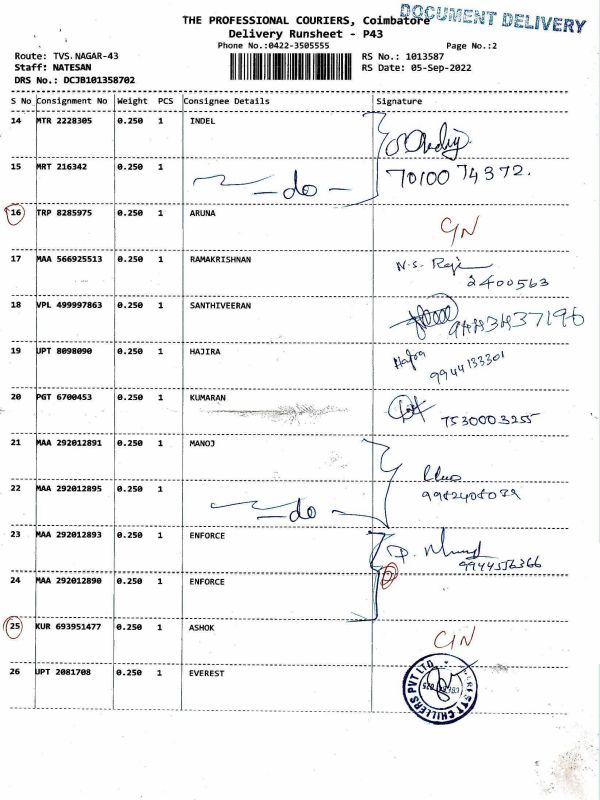 THE PROFESSIONAL COURIERS, Coimbatore
DOCUMENT DELIVERY
Delivery Runsheet - P43
Phone No.:0422-3505555
Page No.:2
Route: TVS.NAGAR-43
RS No.: 1013587
Staff: NATESAN
RS Date: 05-Sep-2022
DRS No.: DCJB101358702
S No Consignment No Weight PCS Consignee Details Signature
14 MTR 2228305 0.250 1 INDEL
15 MRT 216342 0.250 1
70100 74372.
— do —
16 TRP 8285975 0.250 1 ARUNA
17 MAA 566925513 0.250 1 RAMAKRISHNAN
N.S. Raj
2400563
18 VPL 499997863 0.250 1 SANTHIVEERAN
19 UPT 8098090 0.250 1 HAJIRA
9944133301
20 PGT 6700453 0.250 1 KUMARAN
7530003255
21 MAA 292012891 0.250 1 MANOJ
22 MAA 292012895 0.250 1
— do —
23 MAA 292012893 0.250 1 ENFORCE
9944556366
24 MAA 292012890 0.250 1 ENFORCE
25 KUR 693951477 0.250 1 ASHOK
26 UPT 2081708 0.250 1 EVEREST
CHILLERS PVT LTD